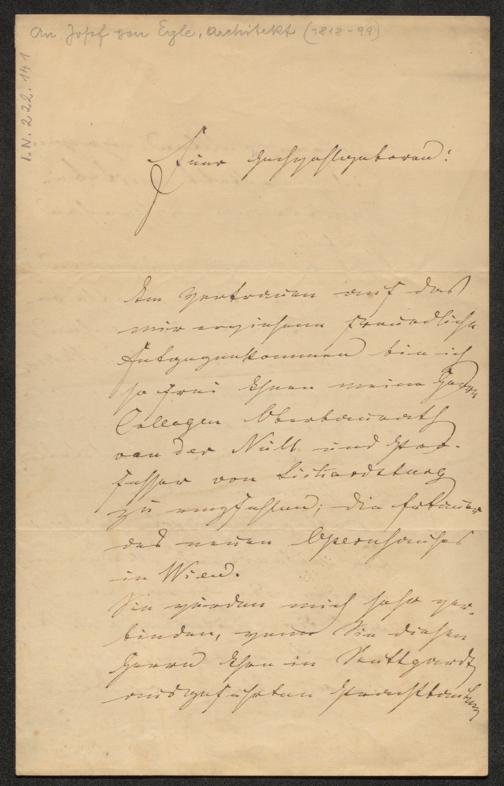 An Josef von Egle, Architekt (1818-99)
I.N. 222.141
Euer Hochwohlgeboren!
Im Vertrauen auf das
mir erwiesene freundliche
Entgegenkommen bin ich
so frei Ihnen meine Herrn
Collegen Oberbaurath
van der Nüll und Pro-
fessor von Siccardsburg
zu empfehlen; die Erbauer
des neuen Opernhauses
in Wien.
Sie würden mich sehr ver-
binden, wenn Sie diesen
Herrn Ihre in Stuttgardt
ausgeführten Prachtbauten